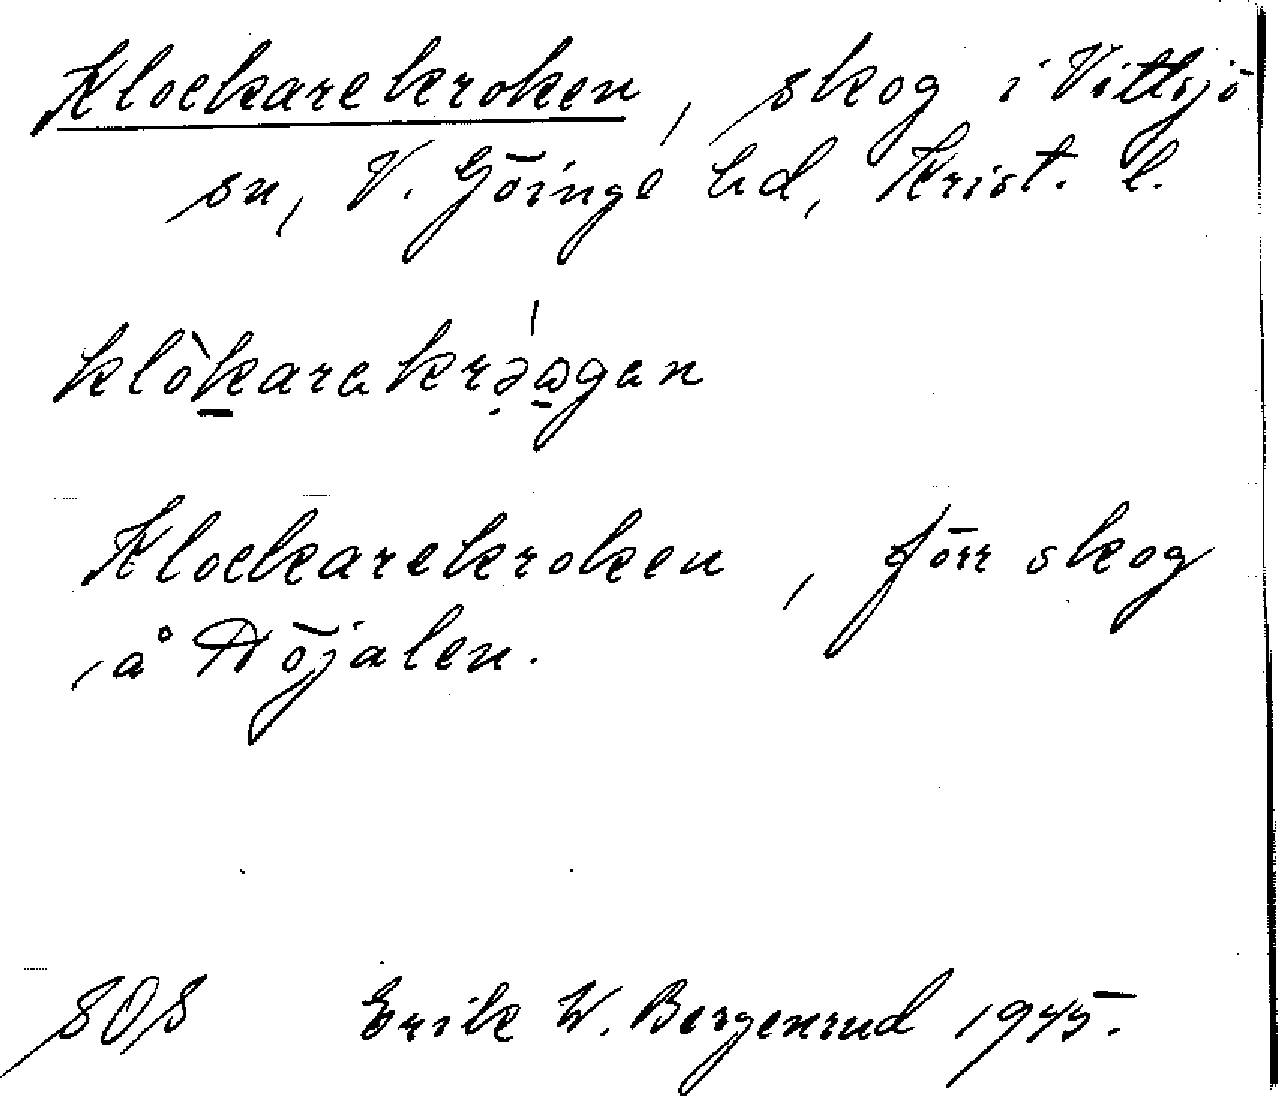 Klockarekroken, skog i Vittsjö
sn, V. Göinge hd, Krist. l.
klòkarakrəágan
Klockarekroken, förr skog
å Döjalen.
SOS Erik W. Bergenrud 1945.